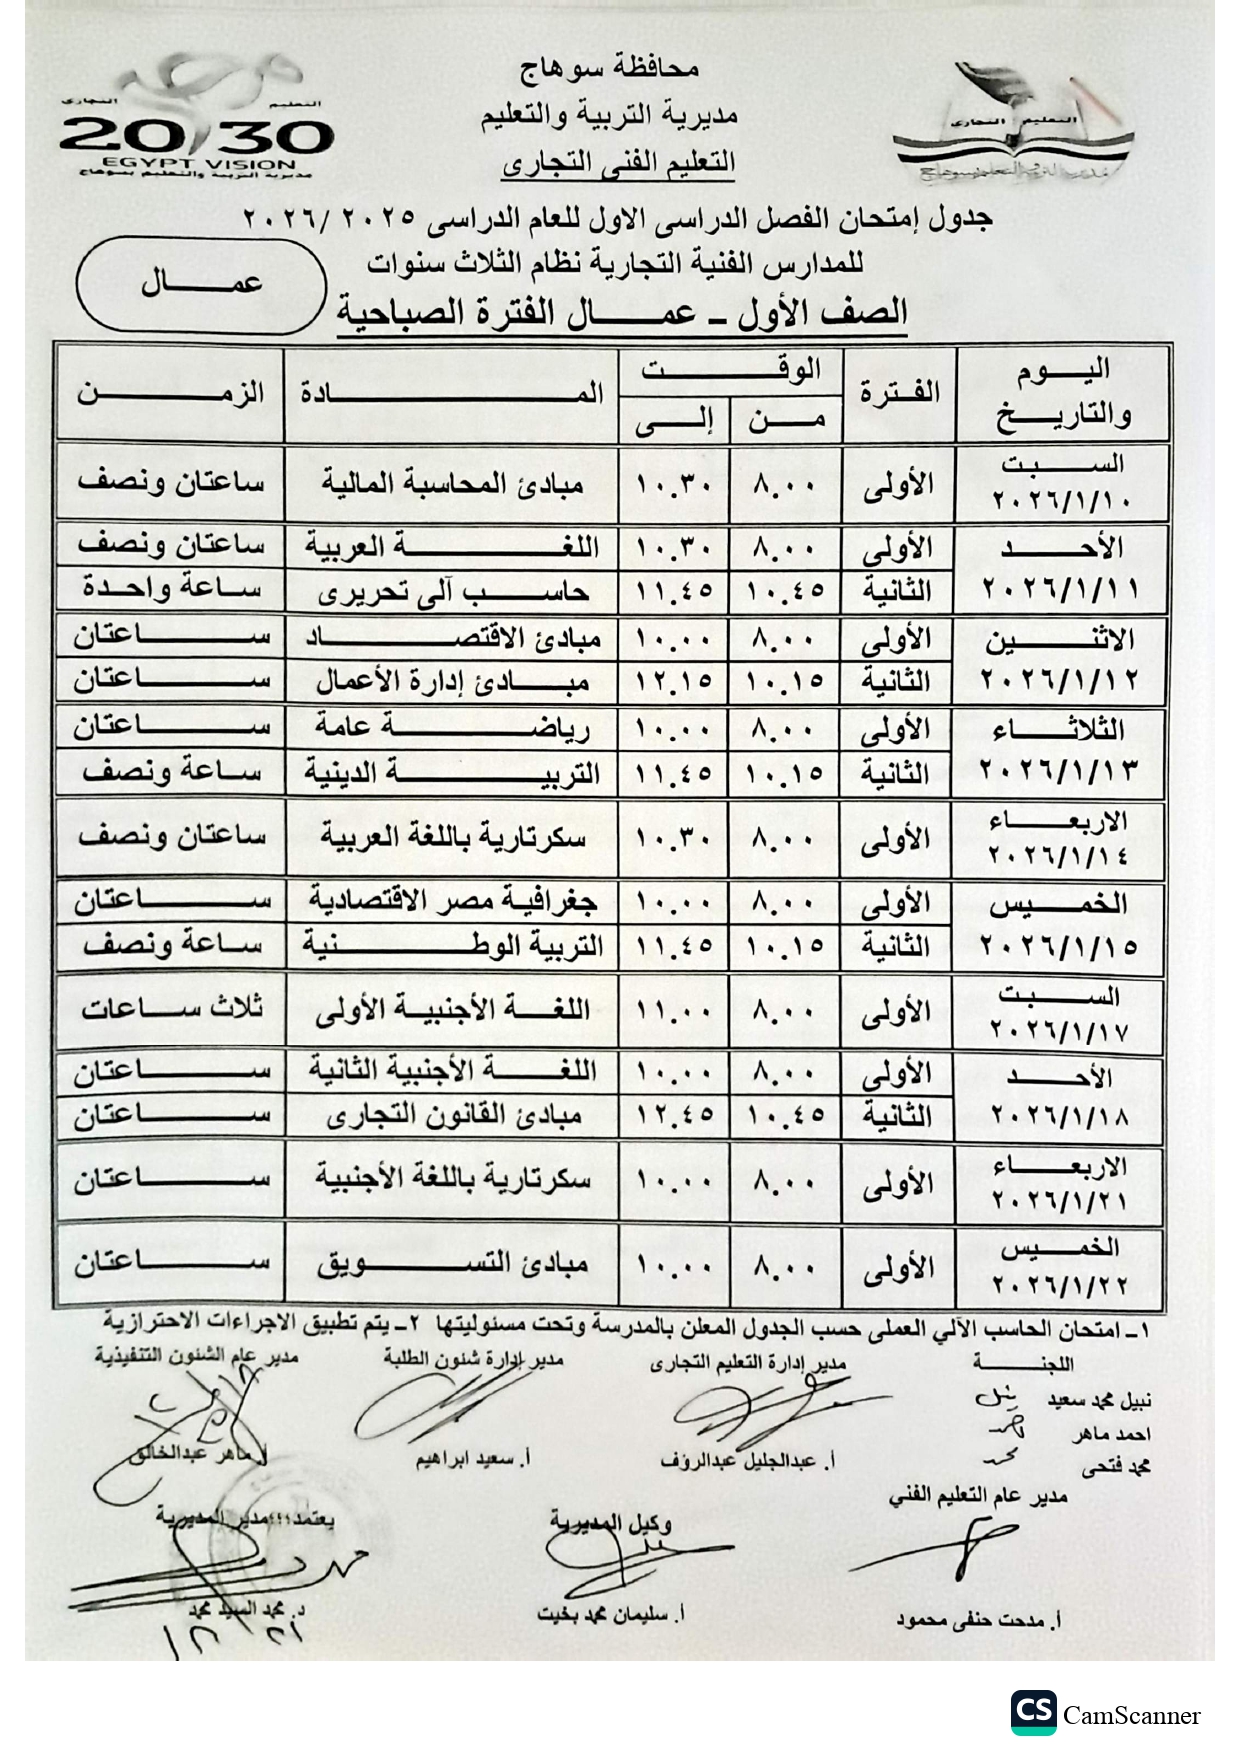 محافظة سوهاج
مديرية التربية والتعليم
التعليم الفنى التجارى
التعليم التجارى
2030
EGYPT VISION
مديرية التربية والتعليم بسوهاج
التعليم التجارى
مديرية التربية والتعليم بسوهاج
جدول إمتحان الفصل الدراسى الاول للعام الدراسى ٢٠٢٥ /٢٠٢٦
للمدارس الفنية التجارية نظام الثلاث سنوات
عمال
الصف الأول - عمال الفترة الصباحية
اليوم والتاريخ | الفترة | الوقت | المادة | الزمن
من | إلى
السبت ٢٠٢٦/١/١٠ | الأولى | ٨.٠٠ | ١٠.٣٠ | مبادئ المحاسبة المالية | ساعتان ونصف
الأحد ٢٠٢٦/١/١١ | الأولى | ٨.٠٠ | ١٠.٣٠ | اللغة العربية | ساعتان ونصف
الثانية | ١٠.٤٥ | ١١.٤٥ | حاسب آلى تحريرى | ساعة واحدة
الاثنين ٢٠٢٦/١/١٢ | الأولى | ٨.٠٠ | ١٠.٠٠ | مبادئ الاقتصاد | ساعتان
الثانية | ١٠.١٥ | ١٢.١٥ | مبادئ إدارة الأعمال | ساعتان
الثلاثاء ٢٠٢٦/١/١٣ | الأولى | ٨.٠٠ | ١٠.٠٠ | رياضة عامة | ساعتان
الثانية | ١٠.١٥ | ١١.٤٥ | التربية الدينية | ساعة ونصف
الاربعاء ٢٠٢٦/١/١٤ | الأولى | ٨.٠٠ | ١٠.٣٠ | سكرتارية باللغة العربية | ساعتان ونصف
الخميس ٢٠٢٦/١/١٥ | الأولى | ٨.٠٠ | ١٠.٠٠ | جغرافية مصر الاقتصادية | ساعتان
الثانية | ١٠.١٥ | ١١.٤٥ | التربية الوطنية | ساعة ونصف
السبت ٢٠٢٦/١/١٧ | الأولى | ٨.٠٠ | ١١.٠٠ | اللغة الأجنبية الأولى | ثلاث ساعات
الأحد ٢٠٢٦/١/١٨ | الأولى | ٨.٠٠ | ١٠.٠٠ | اللغة الأجنبية الثانية | ساعتان
الثانية | ١٠.٤٥ | ١٢.٤٥ | مبادئ القانون التجارى | ساعتان
الاربعاء ٢٠٢٦/١/٢١ | الأولى | ٨.٠٠ | ١٠.٠٠ | سكرتارية باللغة الأجنبية | ساعتان
الخميس ٢٠٢٦/١/٢٢ | الأولى | ٨.٠٠ | ١٠.٠٠ | مبادئ التسويق | ساعتان
١- امتحان الحاسب الآلي العملى حسب الجدول المعلن بالمدرسة وتحت مسئوليتها ٢- يتم تطبيق الاجراءات الاحترازية
اللجنة
نبيل محمد سعيد
احمد ماهر
محمد فتحى
مدير إدارة التعليم التجارى
أ. عبدالجليل عبدالرؤف
مدير إدارة شئون الطلبة
أ. سعيد ابراهيم
مدير عام الشئون التنفيذية
أ. ماهر عبدالخالق
مدير عام التعليم الفني
أ. مدحت حنفى محمود
وكيل المديرية
أ. سليمان محمد بخيت
يعتمد؛؛؛مدير المديرية
د. محمد السيد محمد
CS CamScanner